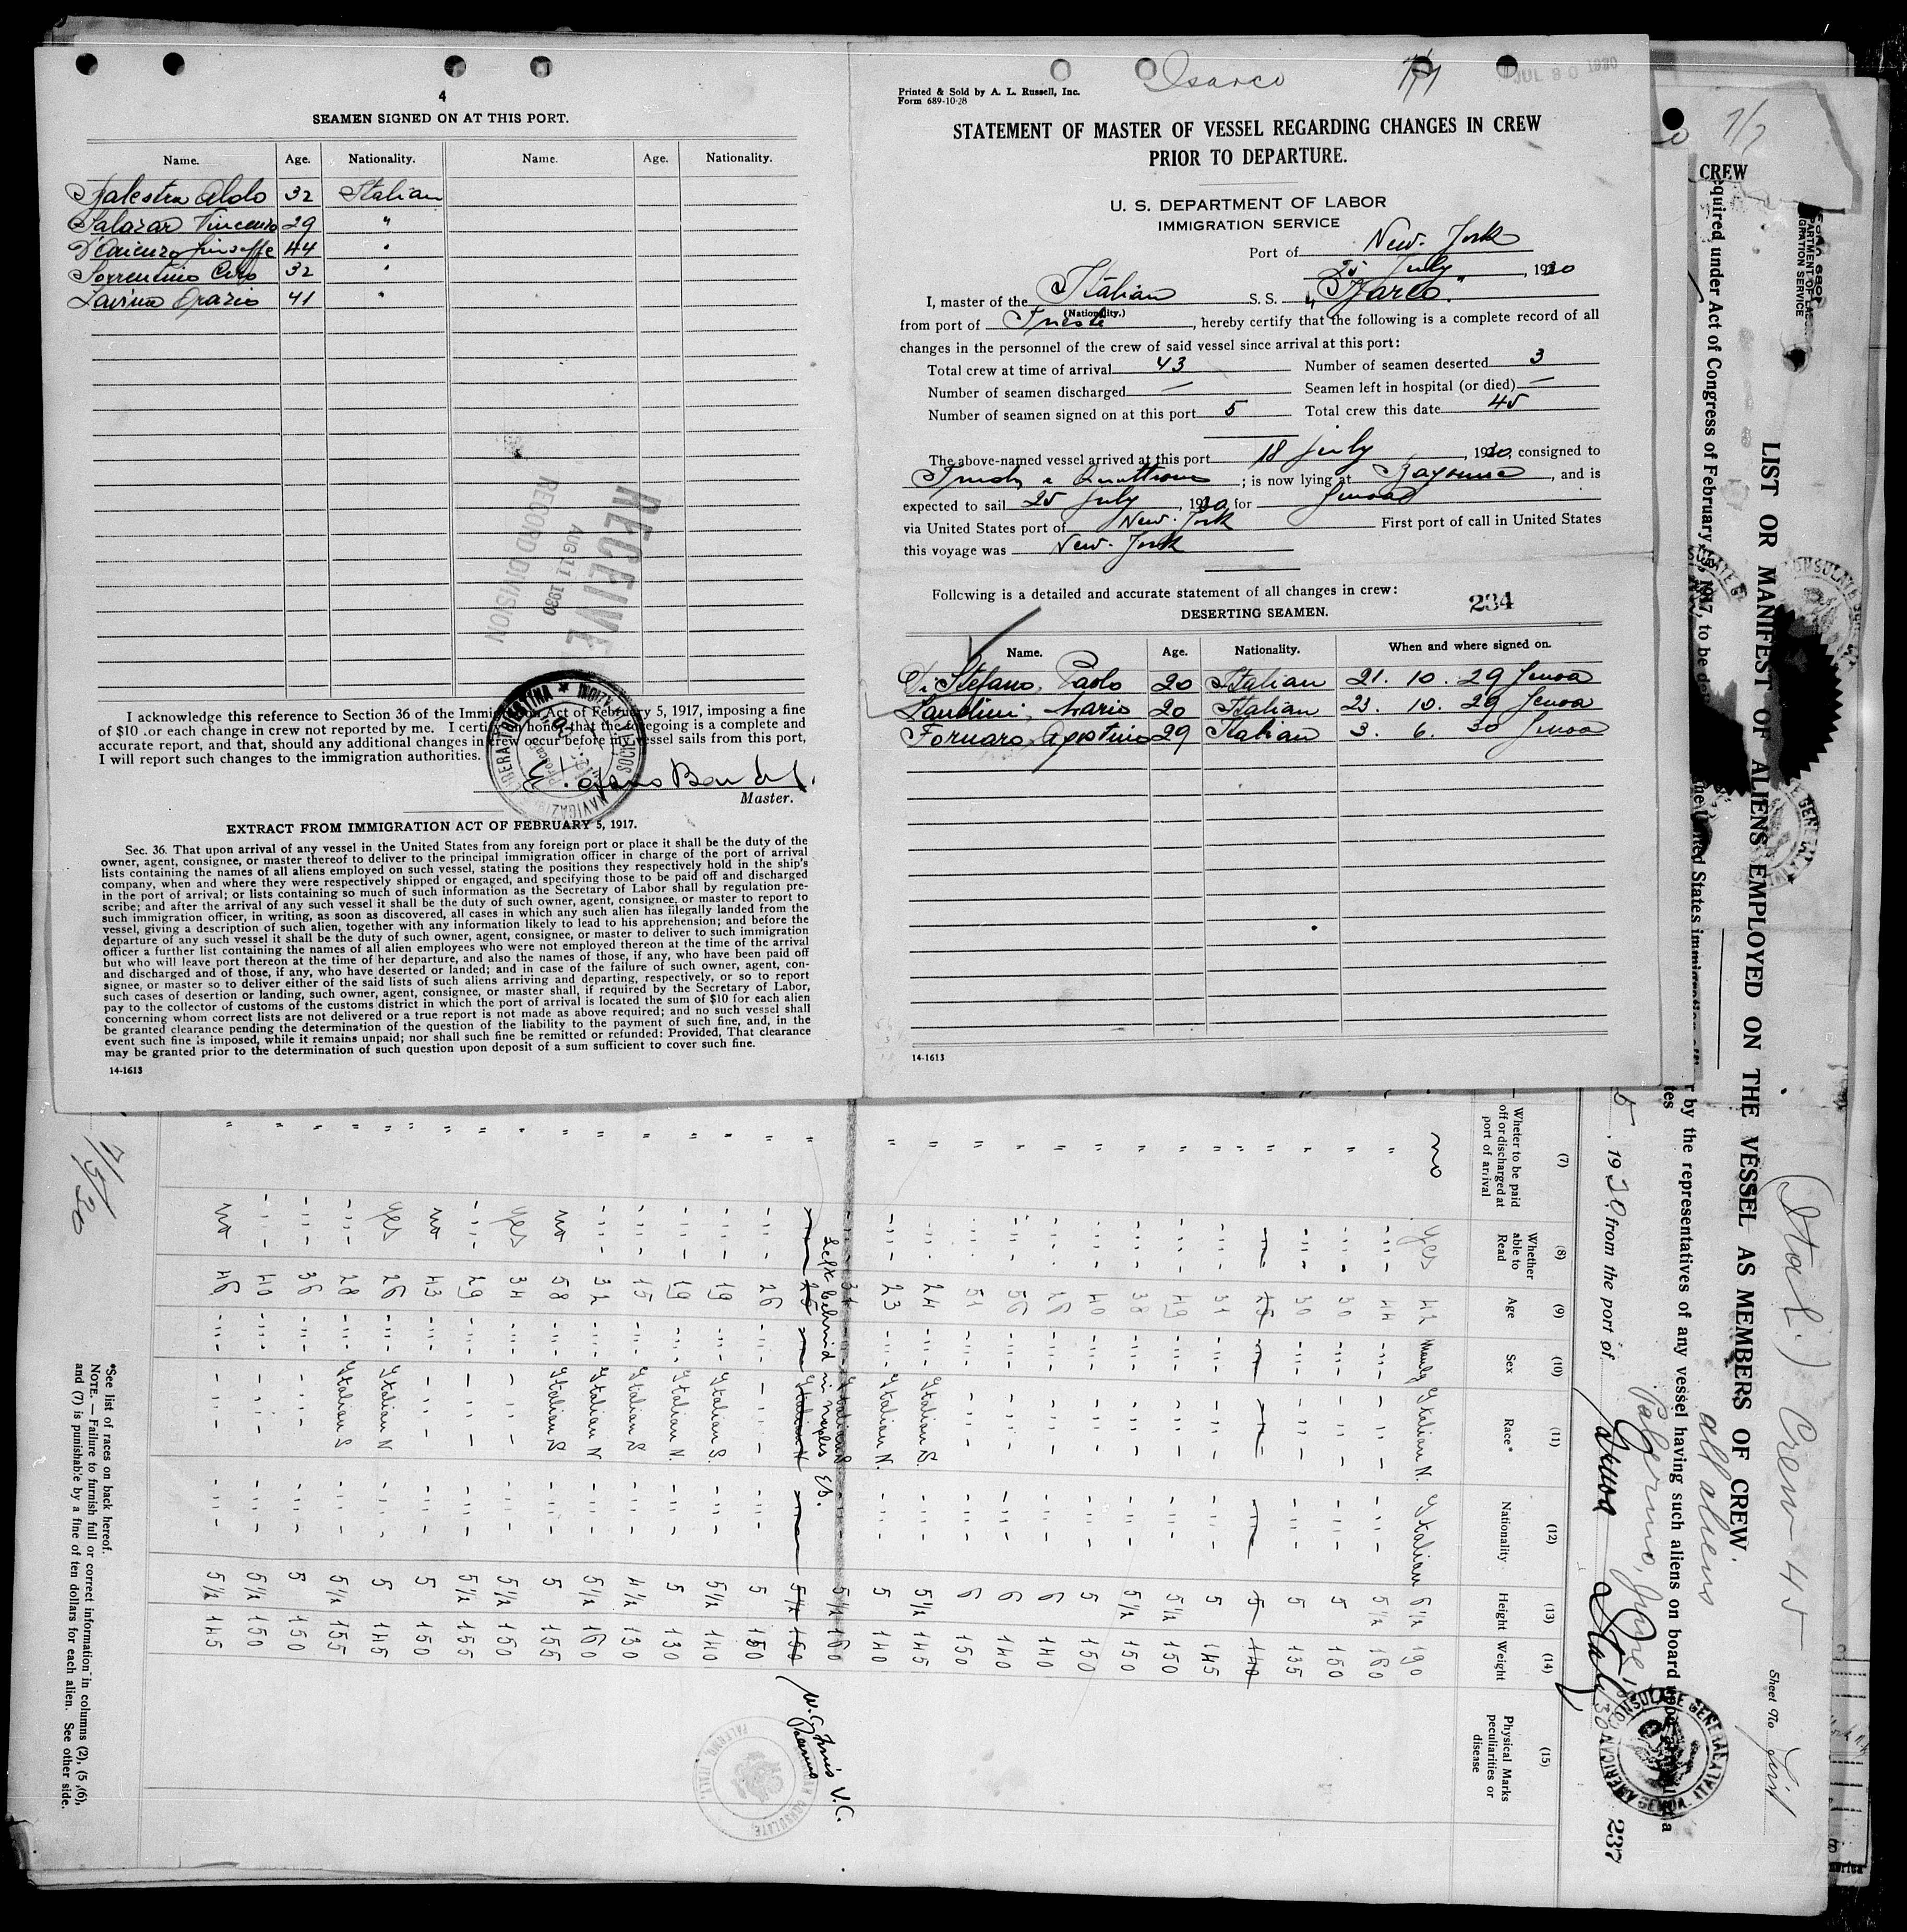 4
SEAMEN SIGNED ON AT THIS PORT.
Name. Age. Nationality. Name. Age. Nationality.
Palestra Aldo 32 Italian
Salazar Vincenzo 29 "
D'Arienzo Giuseppe 44 "
Sorrentino Ciro 32 "
Lavina Orazio 41 "
RECEIVE
AUG 11 1930
RECORD DIVISION
I acknowledge this reference to Section 36 of the Immigration Act of February 5, 1917, imposing a fine
of $10 .or each change in crew not reported by me. I certify honor that the foregoing is a complete and
accurate report, and that, should any additional changes in crew occur before my vessel sails from this port,
I will report such changes to the immigration authorities.
Master.
EXTRACT FROM IMMIGRATION ACT OF FEBRUARY 5, 1917.
Sec. 36. That upon arrival of any vessel in the United States from any foreign port or place it shall be the duty of the
owner, agent, consignee, or master thereof to deliver to the principal immigration officer in charge of the port of arrival
lists containing the names of all aliens employed on such vessel, stating the positions they respectively hold in the ship's
company, when and where they were respectively shipped or engaged, and specifying those to be paid off and discharged
in the port of arrival; or lists containing so much of such information as the Secretary of Labor shall by regulation pre-
scribe; and after the arrival of any such vessel it shall be the duty of such owner, agent, consignee, or master to report to
such immigration officer, in writing, as soon as discovered, all cases in which any such alien has illegally landed from the
vessel, giving a description of such alien, together with any information likely to lead to his apprehension; and before the
departure of any such vessel it shall be the duty of such owner, agent, consignee, or master to deliver to such immigration
officer a further list containing the names of all alien employees who were not employed thereon at the time of the arrival
but who will leave port thereon at the time of her departure, and also the names of those, if any, who have been paid off
and discharged and of those, if any, who have deserted or landed; and in case of the failure of such owner, agent, con-
signee, or master so to deliver either of the said lists of such aliens arriving and departing, respectively, or so to report
such cases of desertion or landing, such owner, agent, consignee, or master shall, if required by the Secretary of Labor,
pay to the collector of customs of the customs district in which the port of arrival is located the sum of $10 for each alien
concerning whom correct lists are not delivered or a true report is not made as above required; and no such vessel shall
be granted clearance pending the determination of the question of the liability to the payment of such fine, and, in the
event such fine is imposed, while it remains unpaid; nor shall such fine be remitted or refunded: Provided, That clearance
may be granted prior to the determination of such question upon deposit of a sum sufficient to cover such fine.
14-1613
Isarco
JUL 30 1930
Printed & Sold by A. L. Russell, Inc.
Form 689-10-28
STATEMENT OF MASTER OF VESSEL REGARDING CHANGES IN CREW
PRIOR TO DEPARTURE.
U. S. DEPARTMENT OF LABOR
IMMIGRATION SERVICE
Port of New-York
25 July, 1930
I, master of the Italian S. S. "Isarco"
(Nationality.)
from port of Trieste, hereby certify that the following is a complete record of all
changes in the personnel of the crew of said vessel since arrival at this port:
Total crew at time of arrival 43 Number of seamen deserted 3
Number of seamen discharged — Seamen left in hospital (or died) —
Number of seamen signed on at this port 5 Total crew this date 45
The above-named vessel arrived at this port 18 July, 1930, consigned to
; is now lying at Bayonne, and is
expected to sail 25 July, 1930, for Genoa
via United States port of New-York First port of call in United States
this voyage was New-York
Following is a detailed and accurate statement of all changes in crew:
234
DESERTING SEAMEN.
Name. Age. Nationality. When and where signed on.
Di Stefano, Paolo 20 Italian 21. 10. 29 Genoa
Landini, Mario 20 Italian 23. 10. 29 Genoa
Fornaro, Agostino 29 Italian 3. 6. 30 Genoa
14-1613
CREW
LIST OR MANIFEST OF ALIENS EMPLOYED ON THE VESSEL AS MEMBERS OF CREW.
(Ital.) Crew 45
all aliens
Sheet No First
equired under Act of Congress of February 5, 1917, to be
he United States immigration
by the representatives of any vessel having such aliens on board
5, 1930 from the port of Genoa Italy
Palermo, June
AMERICAN CONSULATE GENERAL
GENOA, ITALY
237
(7) (8) (9) (10) (11) (12) (13) (14) (15)
Wheter to be paid off or discharged at port of arrival
Whether able to Read
Age
Sex
Race*
Nationality
Height
Weight
Physical Marks peculiarities or disease
no yes 42 Manly Italian N. Italian 6½ 190
" -"- 44 -"- -"- -"- 5½ 160
" -"- 30 -"- -"- -"- 5 150
" -"- 30 -"- -"- -"- 5 135
" -"- 25 -"- -"- -"- 5 140
" -"- 31 -"- -"- -"- 5 145
" -"- 49 -"- -"- -"- 5½ 150
" -"- 38 -"- -"- -"- 5½ 150
" -"- 40 -"- -"- -"- 5 150
" -"- 26 -"- -"- -"- 6 140
" -"- 56 -"- -"- -"- 6 140
" -"- 51 -"- -"- -"- 6 150
" -"- 24 -"- Italian S. -"- 5½ 145
" -"- 23 -"- Italian N. -"- 5 140
" -"- 34 -"- Italian S -"- 5½ 160
Left behind in Naples
" -"- 25 -"- Italian N -"- 5½ 150
" -"- 26 -"- -"- -"- 5 150
" -"- 19 -"- Italian S. -"- 5½ 140
" -"- 19 -"- Italian N. -"- 5 130
" -"- 15 -"- Italian S -"- 4½ 130
" -"- 32 -"- Italian N -"- 5½ 160
" no 58 -"- Italian S -"- 5 155
" yes 34 -"- -"- -"- 5½ 150
" -"- 29 -"- -"- -"- 5½ 155
" no 43 -"- -"- -"- 5 150
" yes 26 -"- Italian N -"- 5 145
" -"- 28 -"- Italian S -"- 5½ 155
" -"- 36 -"- -"- -"- 5 150
" -"- 40 -"- -"- -"- 5½ 150
" no 46 -"- -"- -"- 5½ 145
CONSULATE,
PALERMO, ITALY
*See list of races on back hereof.
NOTE. — Failure to furnish full or correct information in columns (2), (5 ,(6),
and (7) is punishable by a fine of ten dollars for each alien. See other side.